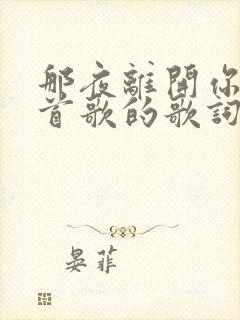 那夜離開你
首歌的歌詞
晏菲